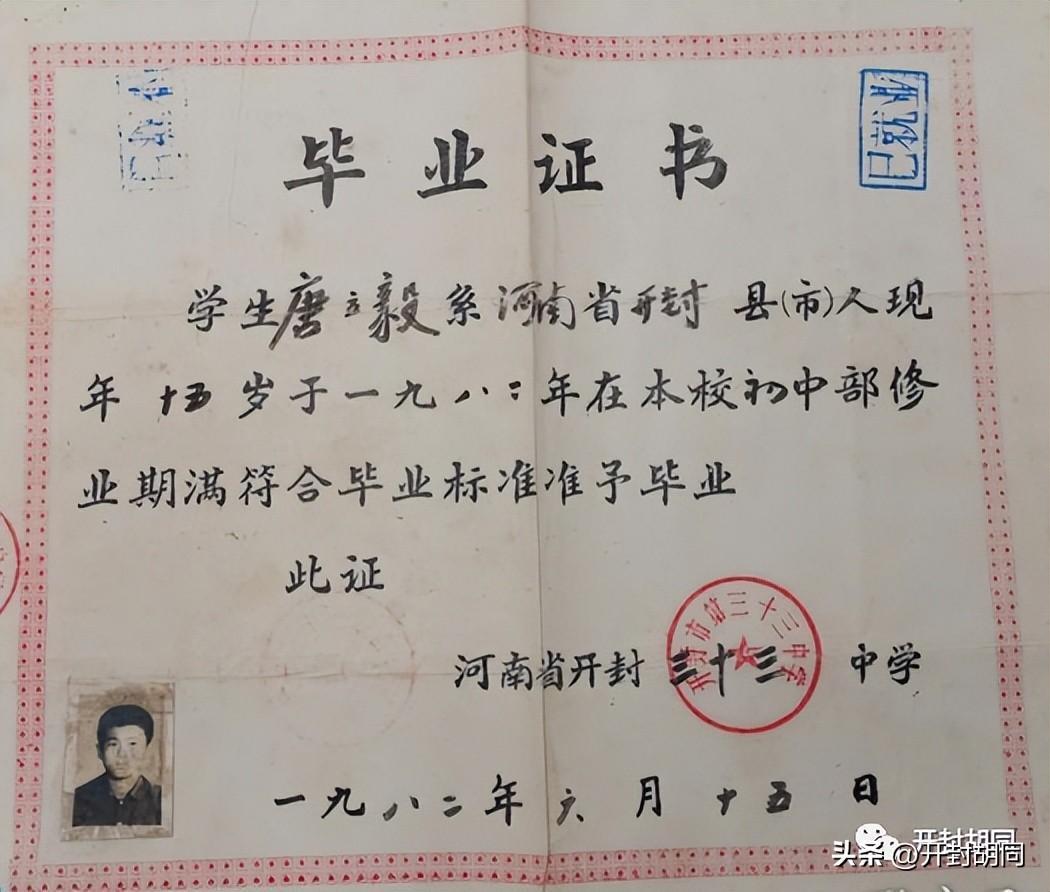 已就业
毕业证书
学生唐立毅系河南省开封 县(市)人现
年 十五 岁于一九八二年在本校初中部修
业期满符合毕业标准准予毕业
此证
开封市第三十三中学
河南省开封 三十三 中学
一九八二年六月十五日
开封胡同
头条 @开封胡同